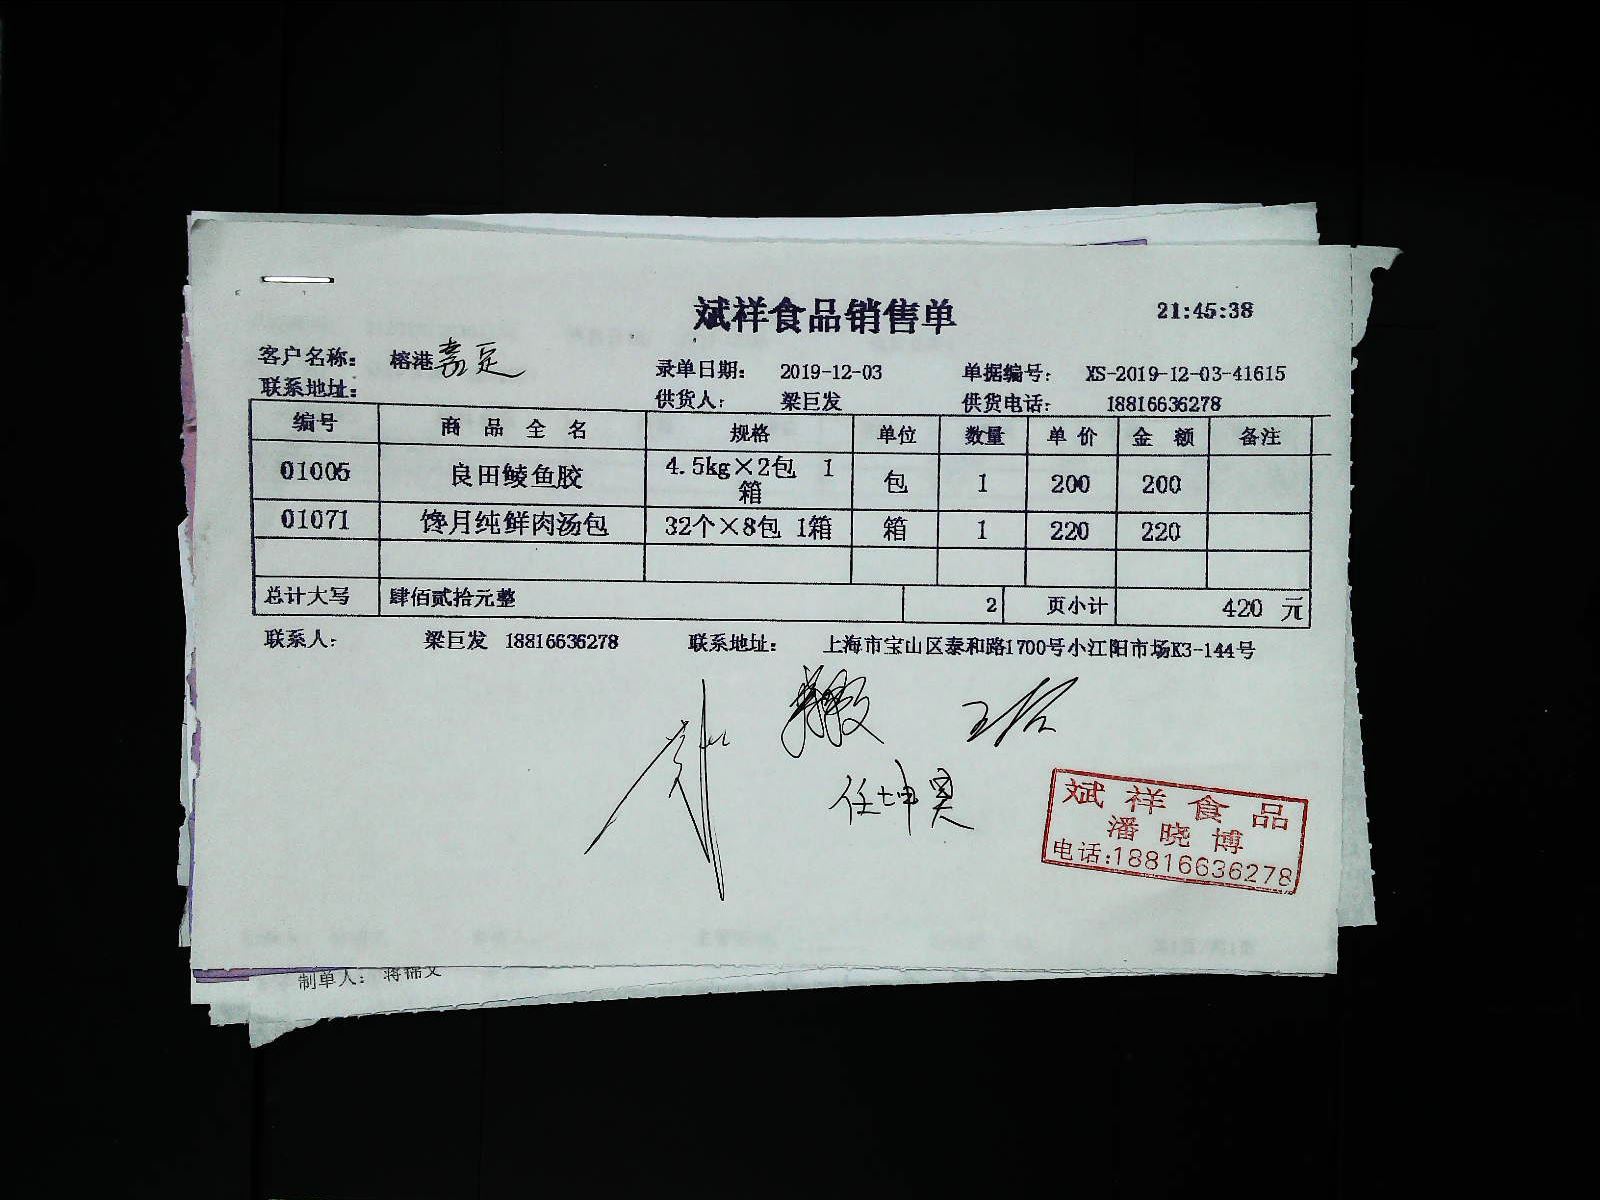 斌祥食品销售单 21:45:38
客户名称: 榕港嘉定 录单日期: 2019-12-03 单据编号: XS-2019-12-03-41615
联系地址: 供货人: 梁巨发 供货电话: 18816636278
编号 商品全名 规格 单位 数量 单价 金额 备注
01005 良田鲮鱼胶 4.5kg×2包 1箱 包 1 200 200
01071 馋月纯鲜肉汤包 32个×8包 1箱 箱 1 220 220
总计大写 肆佰贰拾元整 2 页小计 420 元
联系人: 梁巨发 18816636278 联系地址: 上海市宝山区泰和路1700号小江阳市场K3-144号
任坤昊
斌祥食品
潘晓博
电话:18816636278
制单人: 蒋锦文